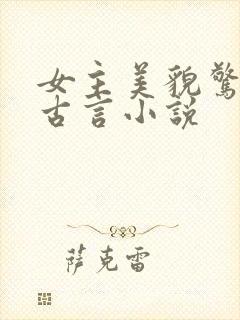 女主美貌驚
古言小說
薩克雷